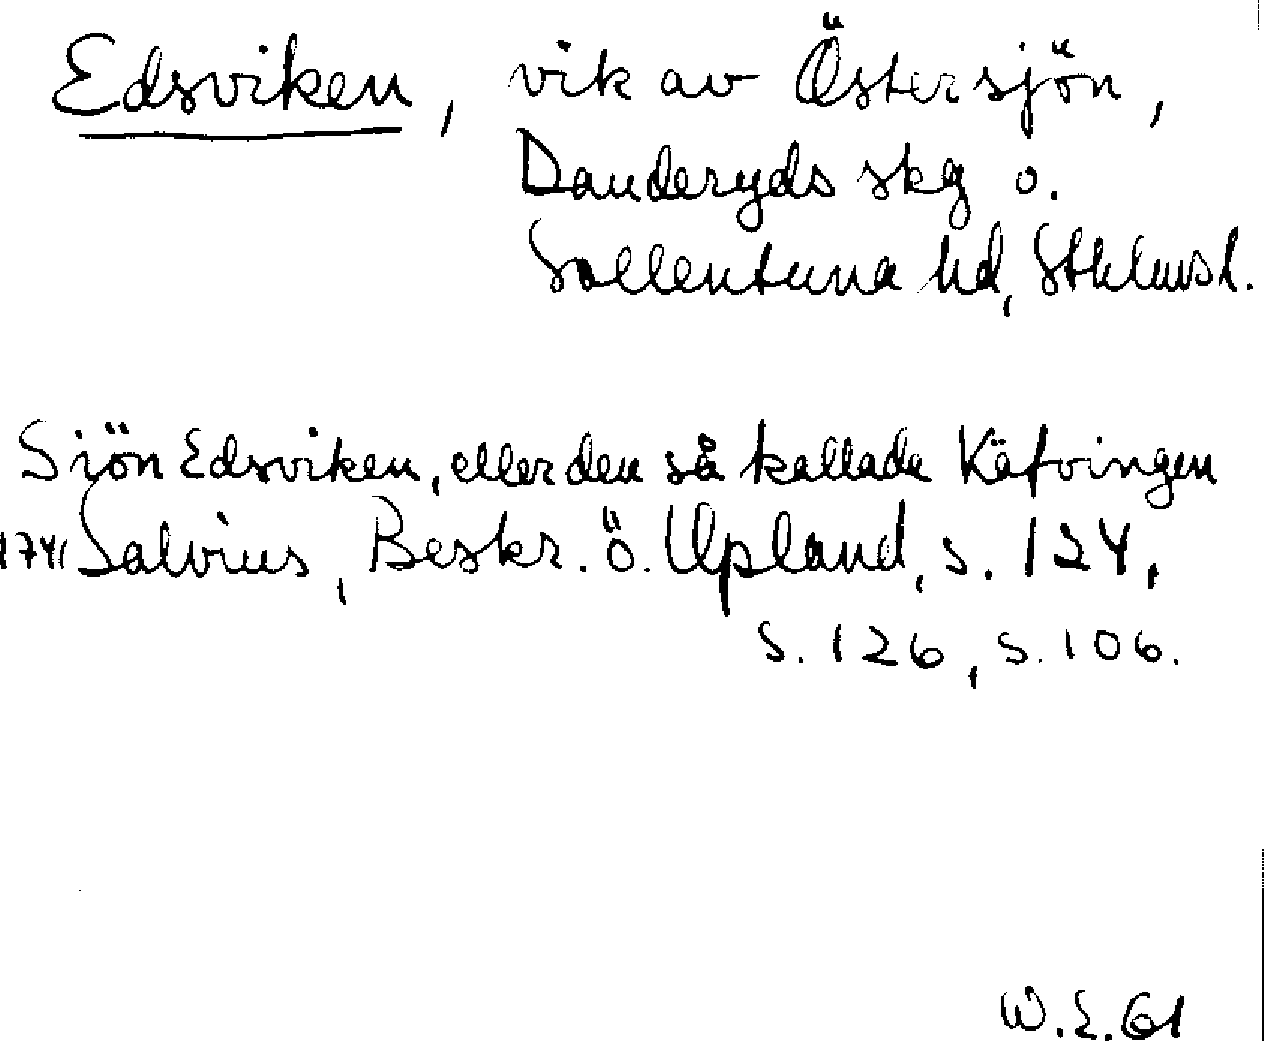 Edsviken, vik av Östersjön,
Danderyds skg o.
Sollentuna hd, Sthlmsl.
Siön Edsviken, eller den så kallade Käfvingen
1741 Salvius, Beskr. ö. Upland, s. 124,
s. 126, s. 106.
W.E. 61